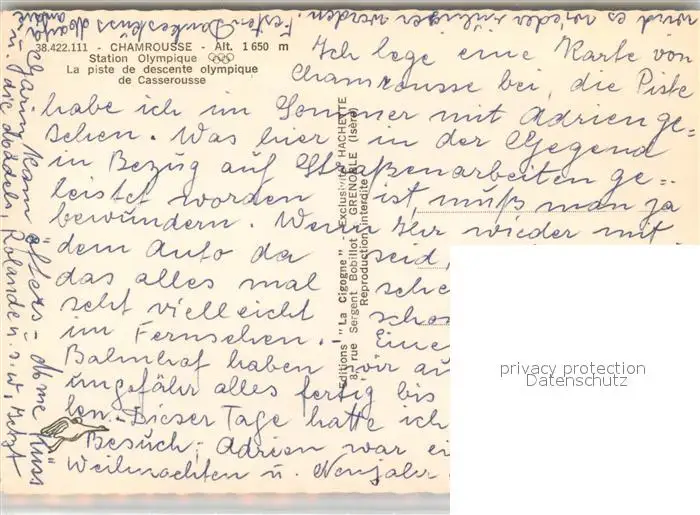 wird es wieder ruhiger werden. Festen
38.422.111 - CHAMROUSSE - Alt. 1 650 m
Station Olympique
La piste de descente olympique
de Casserousse
Ich lege eine Karte von
Chamrousse bei, die Piste
habe ich im Sommer mit Adrien ge=
sehen. Was hier in der Gegend
in Bezug auf Straßenarbeiten ge=
leistet worden ist, muß man ja
bewundern. Wenn Ihr wieder mit
dem Auto da seid,
das alles mal
seht vielleicht
im Fernsehen. Eine
Bahnhof haben wir au
ungefähr alles fertig bis
len. Dieser Tage hatte ich
Besuch; Adrien war ei
Weihnachten u. Neujahr
kam öfters
u. die
u.s.w. Jetzt
Editions "La Cigogne" - Exclusivité HACHETTE
8, rue Sergent Bobillot - GRENOBLE (Isère)
Reproduction interdite
privacy protection
Datenschutz